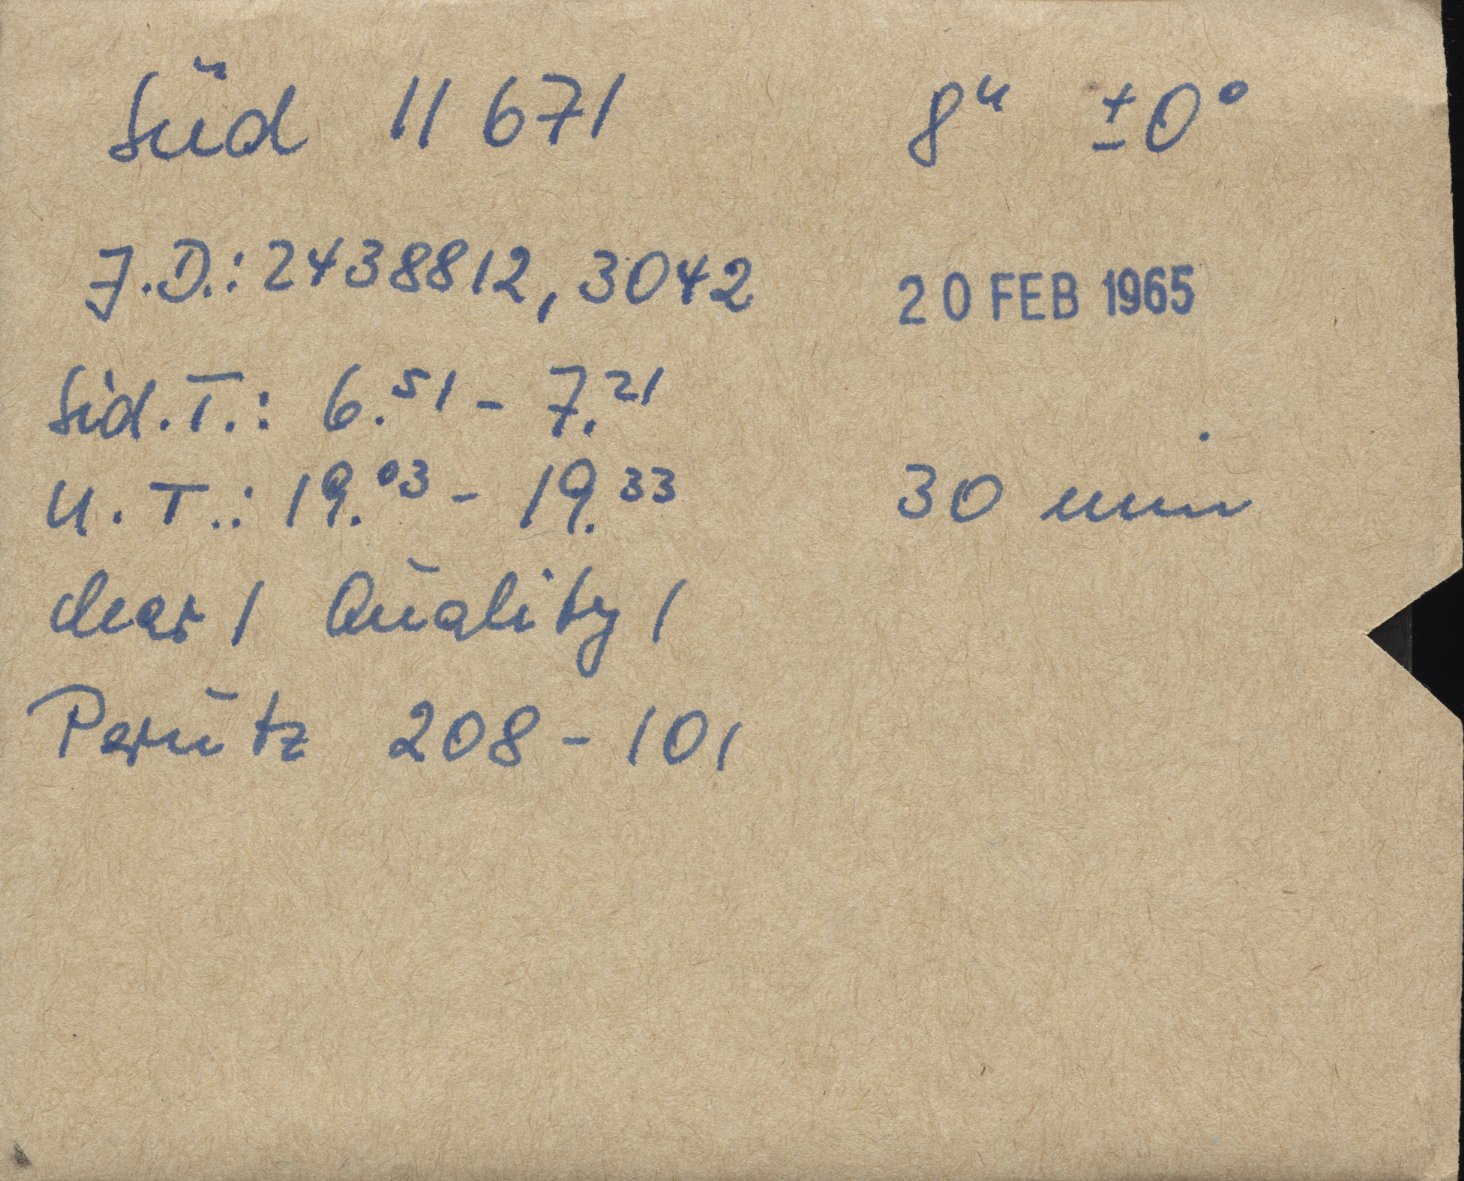 Süd 11671 8ᵘ ±0°
J.D.: 2438812,3042 20 FEB 1965
Sid.T.: 6.⁵¹ - 7.²¹
U.T.: 19.⁰³ - 19.³³ 30 min
clear 1 Quality 1
Perutz 208-101